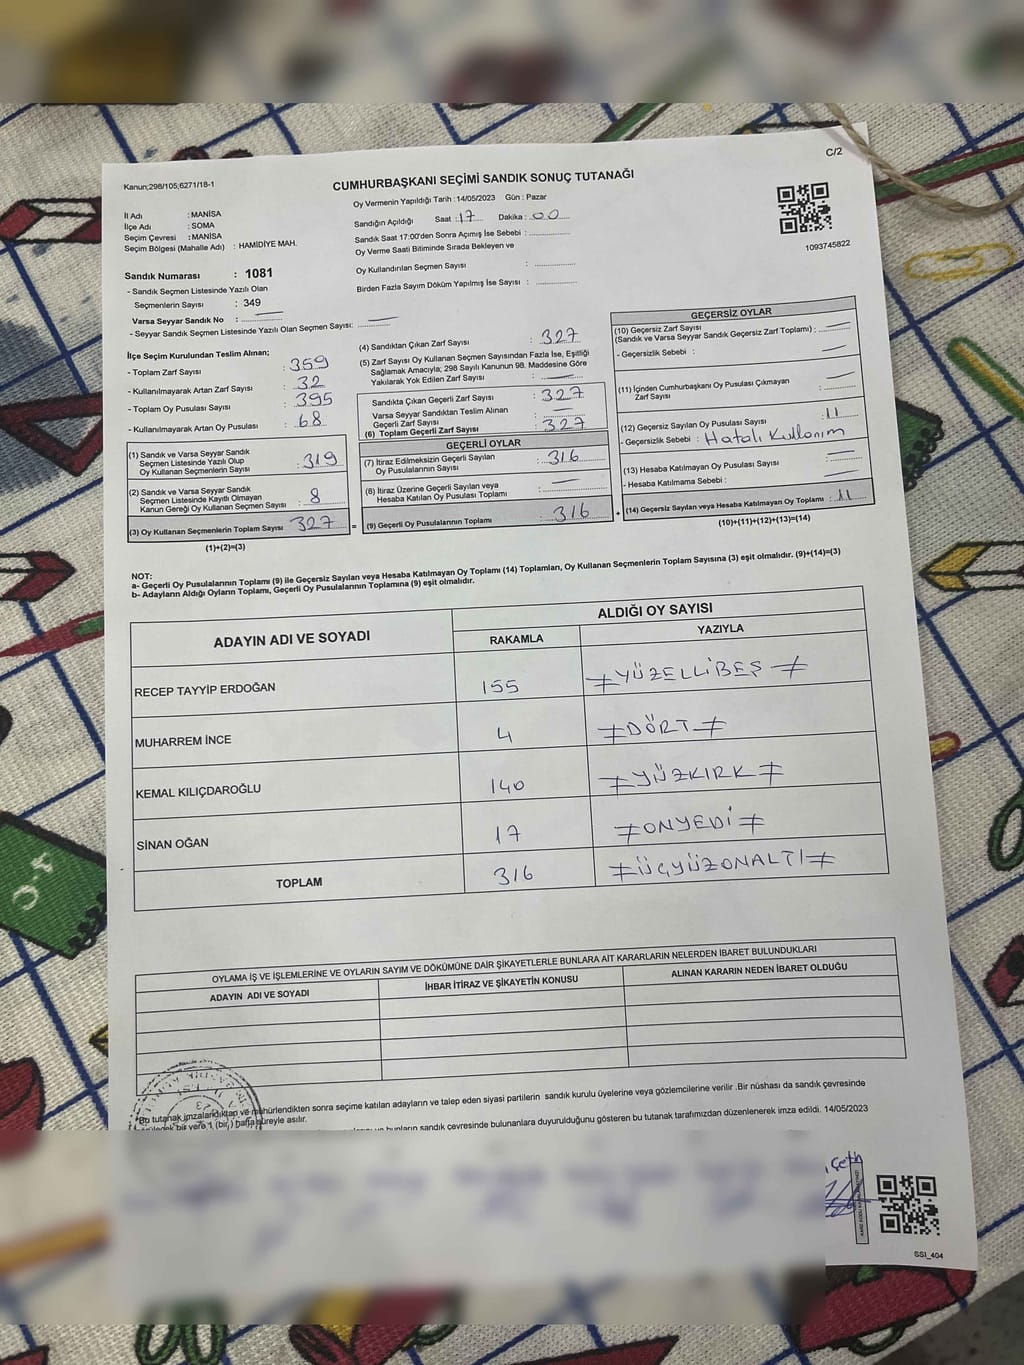 C/2
Kanun;298/105;6271/18-1
CUMHURBAŞKANI SEÇİMİ SANDIK SONUÇ TUTANAĞI
Oy Vermenin Yapıldığı Tarih : 14/05/2023 Gün : Pazar
1093745822
İl Adı : MANİSA
İlçe Adı : SOMA
Seçim Çevresi : MANİSA
Seçim Bölgesi (Mahalle Adı) : HAMİDİYE MAH.
Sandık Numarası : 1081
- Sandık Seçmen Listesinde Yazılı Olan
Seçmenlerin Sayısı : 349
Varsa Seyyar Sandık No :
- Seyyar Sandık Seçmen Listesinde Yazılı Olan Seçmen Sayısı:
Sandığın Açıldığı Saat : 17 Dakika : 00
Sandık Saat 17:00'den Sonra Açımış İse Sebebi :
Oy Verme Saati Bitiminde Sırada Bekleyen ve
Oy Kullandırılan Seçmen Sayısı :
Birden Fazla Sayım Döküm Yapılmış İse Sayısı :
İlçe Seçim Kurulundan Teslim Alınan;
- Toplam Zarf Sayısı : 359
- Kullanılmayarak Artan Zarf Sayısı : 32
- Toplam Oy Pusulası Sayısı : 395
- Kullanılmayarak Artan Oy Pusulası : 68
(1) Sandık ve Varsa Seyyar Sandık
Seçmen Listesinde Yazılı Olup
Oy Kullanan Seçmenlerin Sayısı : 319
(2) Sandık ve Varsa Seyyar Sandık
Seçmen Listesinde Kayıtlı Olmayan
Kanun Gereği Oy Kullanan Seçmen Sayısı : 8
(3) Oy Kullanan Seçmenlerin Toplam Sayısı 327
(1)+(2)=(3)
(4) Sandıktan Çıkan Zarf Sayısı : 327
(5) Zarf Sayısı Oy Kullanan Seçmen Sayısından Fazla İse, Eşitliği
Sağlamak Amacıyla; 298 Sayılı Kanunun 98. Maddesine Göre
Yakılarak Yok Edilen Zarf Sayısı :
Sandıkta Çıkan Geçerli Zarf Sayısı : 327
Varsa Seyyar Sandıktan Teslim Alınan
Geçerli Zarf Sayısı :
(6) Toplam Geçerli Zarf Sayısı : 327
GEÇERLİ OYLAR
(7) İtiraz Edilmeksizin Geçerli Sayılan
Oy Pusulalarının Sayısı : 316
(8) İtiraz Üzerine Geçerli Sayılan veya
Hesaba Katılan Oy Pusulası Toplamı :
= (9) Geçerli Oy Pusulalarının Toplamı : 316
GEÇERSİZ OYLAR
(10) Geçersiz Zarf Sayısı
(Sandık ve Varsa Seyyar Sandık Geçersiz Zarf Toplamı) :
- Geçersizlik Sebebi :
(11) İçinden Cumhurbaşkanı Oy Pusulası Çıkmayan
Zarf Sayısı :
(12) Geçersiz Sayılan Oy Pusulası Sayısı : 11
- Geçersizlik Sebebi : Hatalı Kullanım
(13) Hesaba Katılmayan Oy Pusulası Sayısı :
- Hesaba Katılmama Sebebi :
+ (14) Geçersiz Sayılan veya Hesaba Katılmayan Oy Toplamı : 11
(10)+(11)+(12)+(13)=(14)
NOT:
a- Geçerli Oy Pusulalarının Toplamı (9) ile Geçersiz Sayılan veya Hesaba Katılmayan Oy Toplamı (14) Toplamları, Oy Kullanan Seçmenlerin Toplam Sayısına (3) eşit olmalıdır. (9)+(14)=(3)
b- Adayların Aldığı Oyların Toplamı, Geçerli Oy Pusulalarının Toplamına (9) eşit olmalıdır.
ADAYIN ADI VE SOYADI ALDIĞI OY SAYISI
RAKAMLA YAZIYLA
RECEP TAYYİP ERDOĞAN 155 ≠YÜZELLİBEŞ≠
MUHARREM İNCE 4 ≠DÖRT≠
KEMAL KILIÇDAROĞLU 140 ≠YÜZKIRK≠
SİNAN OĞAN 17 ≠ONYEDİ≠
TOPLAM 316 ≠ÜÇYÜZONALTI≠
OYLAMA İŞ VE İŞLEMLERİNE VE OYLARIN SAYIM VE DÖKÜMÜNE DAİR ŞİKAYETLERLE BUNLARA AİT KARARLARIN NELERDEN İBARET BULUNDUKLARI
ADAYIN ADI VE SOYADI İHBAR İTİRAZ VE ŞİKAYETİN KONUSU ALINAN KARARIN NEDEN İBARET OLDUĞU
Bu tutanak imzalandıktan ve mühürlendikten sonra seçime katılan adayların ve talep eden siyasi partilerin sandık kurulu üyelerine veya gözlemcilerine verilir .Bir nüshası da sandık çevresinde
bir yere 1 (bir) hafta süreyle asılır.
bunların sandık çevresinde bulunanlara duyurulduğunu gösteren bu tutanak tarafımızdan düzenlenerek imza edildi. 14/05/2023
SSI_404